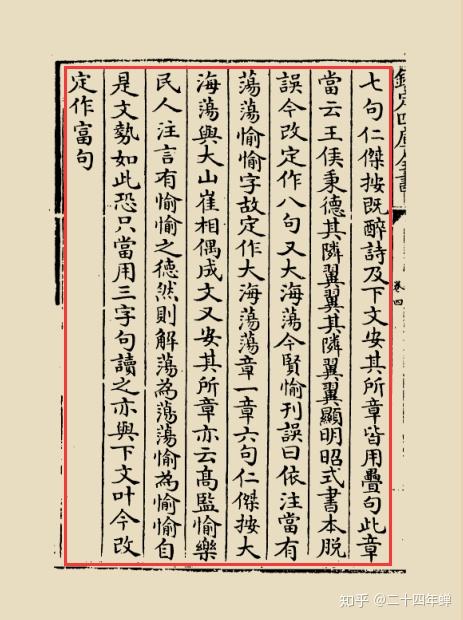 欽定四庫全書
卷四
七句仁傑按既醉詩及下文安其所章皆用疊句此章
當云王侯秉德其隣翼翼其隣翼翼顯明昭式書本脱
誤今改定作八句又大海蕩今賢愉刊誤曰依注當有
蕩蕩愉愉字故定作大海蕩蕩章一章六句仁傑按大
海蕩與大山崔相偶成文又安其所章亦云髙監愉樂
民人注言有愉愉之徳然則解蕩為蕩蕩愉為愉愉自
是文勢如此恐只當用三字句讀之亦與下文叶今改
定作富句
知乎 @二十四年蝉